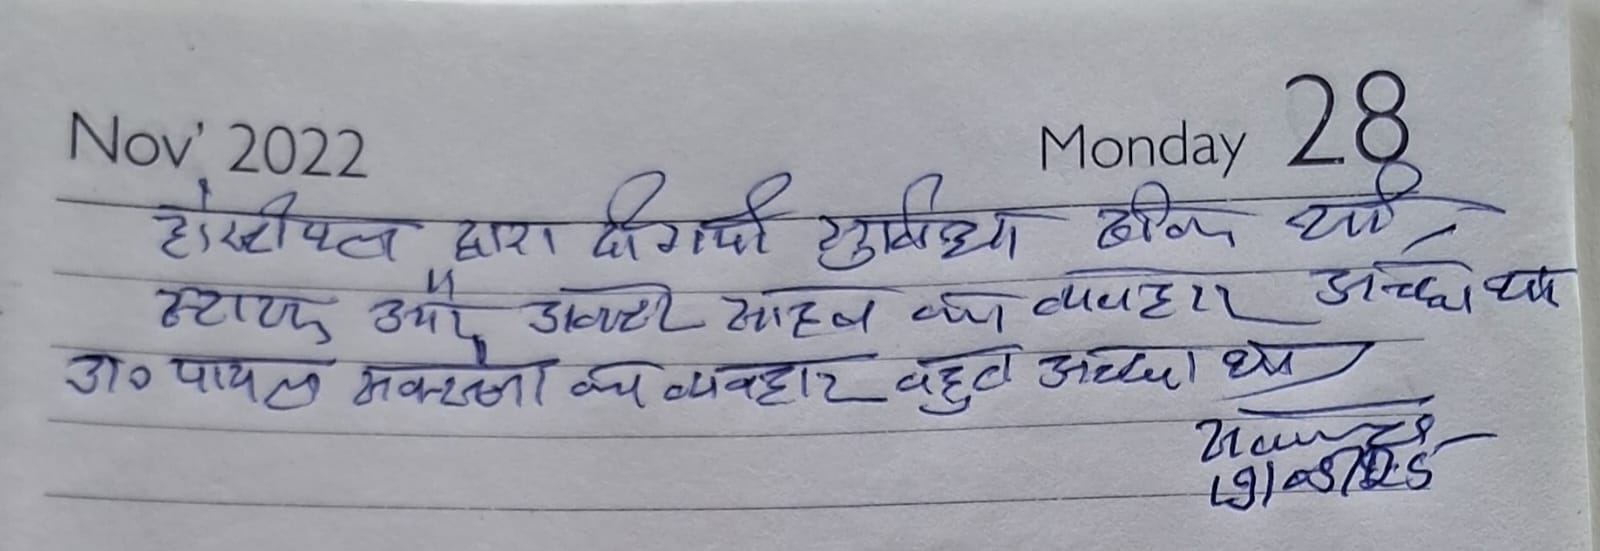 Nov' 2022 Monday 28
होस्पीटल द्वारा दी गयी सुविधा ठीक थी
स्टाफ और डाक्टर साहब का व्यवहार अच्छा था
डा० पायल का व्यवहार बहुत अच्छा था
19/05/25